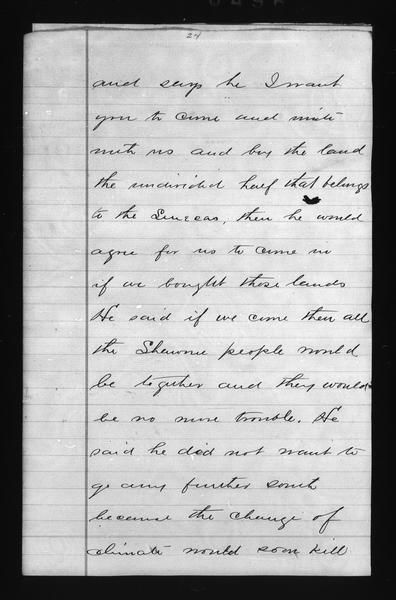 24
and says he I want
you to come and unite
with us and buy the land
the undivided half that belongs
to the Senecas, then he would
agree for us to come in
if we bought those lands
He said if we come then all
the Shawnee people would
be together and they would
be no more trouble. He
said he did not want to
go any further south
because the change of
climate would soon kill